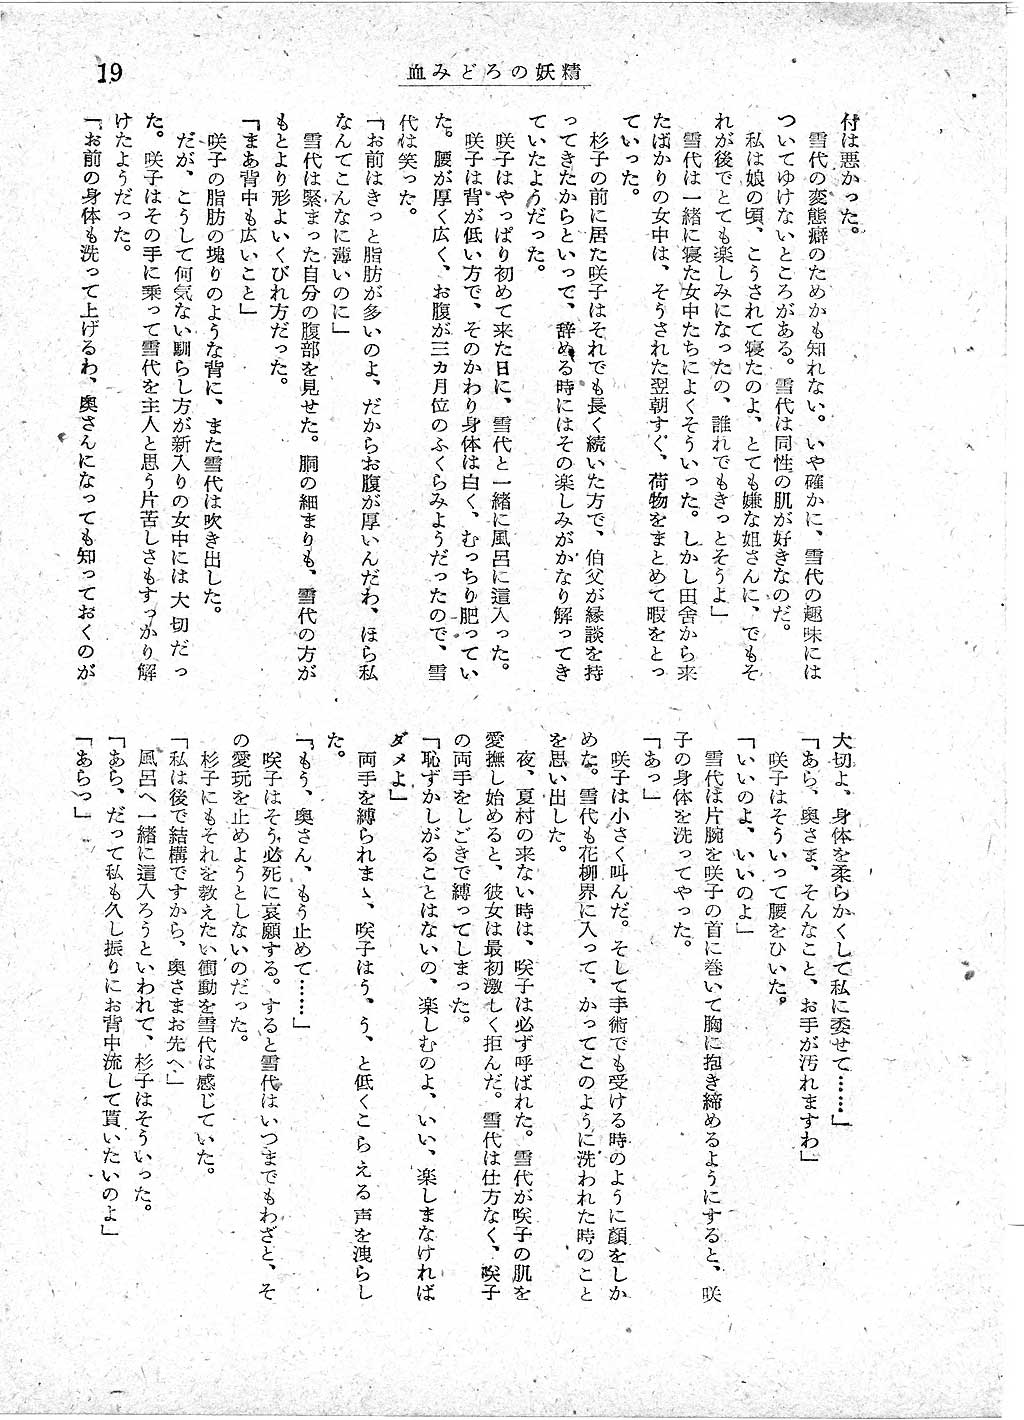 19
血みどろの妖精
付は悪かった。
雪代の変態癖のためかも知れない。いや確かに、雪代の趣味には
ついてゆけないところがある。雪代は同性の肌が好きなのだ。
私は娘の頃、こうされて寝たのよ、とても嫌な姐さんに、でもそ
れが後でとても楽しみになったの、誰れでもきっとそうよ」
雪代は一緒に寝た女中たちによくそういった。しかし田舎から来
たばかりの女中は、そうされた翌朝すぐ、荷物をまとめて暇をとっ
ていった。
杉子の前に居た咲子はそれでも長く続いた方で、伯父が縁談を持
ってきたからといって、辞める時にはその楽しみがかなり解ってき
ていたようだった。
咲子はやっぱり初めて来た日に、雪代と一緒に風呂に這入った。
咲子は背が低い方で、そのかわり身体は白く、むっちり肥ってい
た。腰が厚く広く、お腹が三カ月位のふくらみようだったので、雪
代は笑った。
「お前はきっと脂肪が多いのよ、だからお腹が厚いんだわ、ほら私
なんてこんなに薄いのに」
雪代は緊まった自分の腹部を見せた。胴の細まりも、雪代の方が
もとより形よいくびれ方だった。
「まあ背中も広いこと」
咲子の脂肪の塊りのような背に、また雪代は吹き出した。
だが、こうして何気ない馴らし方が新入りの女中には大切だっ
た。咲子はその手に乗って雪代を主人と思う片苦しさもすっかり解
けたようだった。
「お前の身体も洗って上げるわ、奥さんになっても知っておくのが
大切よ、身体を柔らかくして私に委せて……」
「あら、奥さま、そんなこと、お手が汚れますわ」
咲子はそういって腰をひいた。
「いいのよ、いいのよ」
雪代は片腕を咲子の首に巻いて胸に抱き締めるようにすると、咲
子の身体を洗ってやった。
「あっ」
咲子は小さく叫んだ。そして手術でも受ける時のように顔をしか
めた。雪代も花柳界に入って、かってこのように洗われた時のこと
を思い出した。
夜、夏村の来ない時は、咲子は必ず呼ばれた。雪代が咲子の肌を
愛撫し始めると、彼女は最初激しく拒んだ。雪代は仕方なく、咲子
の両手をしごきで縛ってしまった。
「恥ずかしがることはないの、楽しむのよ、いい、楽しまなければ
ダメよ」
両手を縛られまゝ、咲子はう、う、と低くこらえる声を洩らし
た。
「もう、奥さん、もう止めて……」
咲子はそう必死に哀願する。すると雪代はいつまでもわざと、そ
の愛玩を止めようとしないのだった。
杉子にもそれを教えたい衝動を雪代は感じていた。
「私は後で結構ですから、奥さまお先へ」
風呂へ一緒に這入ろうといわれて、杉子はそういった。
「あら、だって私も久し振りにお背中流して貰いたいのよ」
「あらっ」